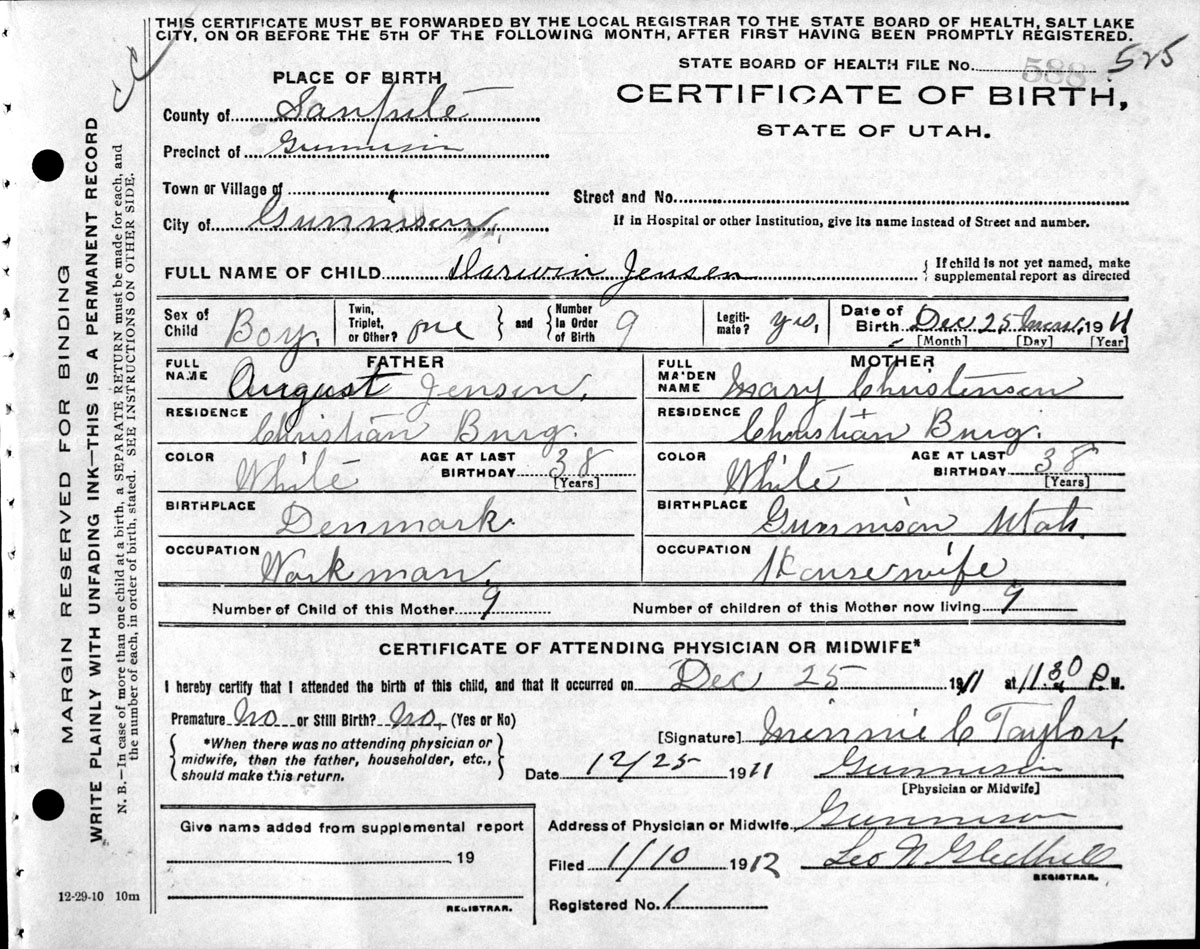 THIS CERTIFICATE MUST BE FORWARDED BY THE LOCAL REGISTRAR TO THE STATE BOARD OF HEALTH, SALT LAKE
CITY, ON OR BEFORE THE 5TH OF THE FOLLOWING MONTH, AFTER FIRST HAVING BEEN PROMPTLY REGISTERED.
STATE BOARD OF HEALTH FILE No. 588 525
PLACE OF BIRTH
CERTIFICATE OF BIRTH,
STATE OF UTAH.
County of Sanpete
Precinct of Gunnison
Town or Village of
Street and No.
City of Gunnison,
If in Hospital or other Institution, give its name instead of Street and number.
FULL NAME OF CHILD Darwin Jensen { If child is not yet named, make
supplemental report as directed
Sex of Child Boy. Twin, Triplet, or Other? one } and { Number In Order of Birth 9 Legiti-mate? yes, Date of Birth Dec 25 1911
[Month] [Day] [Year]
FATHER MOTHER
FULL NAME August Jensen, FULL MAIDEN NAME Mary Christensen
RESIDENCE Christian Burg. RESIDENCE Christian Burg.
COLOR White AGE AT LAST BIRTHDAY 38 [Years] COLOR White AGE AT LAST BIRTHDAY 38 [Years]
BIRTHPLACE Denmark. BIRTHPLACE Gunnison Utah.
OCCUPATION Workman, OCCUPATION Housewife,
Number of Child of this Mother 9 Number of children of this Mother now living 9
CERTIFICATE OF ATTENDING PHYSICIAN OR MIDWIFE*
I hereby certify that I attended the birth of this child, and that it occurred on Dec 25 1911 at 11.30 P. M.
Premature No or Still Birth? No, (Yes or No)
[Signature] Minnie C Taylor,
{ *When there was no attending physician or
midwife, then the father, householder, etc.,
should make this return. }
Date 12/25 1911 Gunnison
[Physician or Midwife]
Give name added from supplemental report
19
REGISTRAR.
Address of Physician or Midwife Gunnison
Filed 1/10 1912 Leo
REGISTRAR.
Registered No. 1
12-29-10 10m
MARGIN RESERVED FOR BINDING
WRITE PLAINLY WITH UNFADING INK—THIS IS A PERMANENT RECORD
N. B.—In case of more than one child at a birth, a SEPARATE RETURN must be made for each, and
the number of each, in order of birth, stated. SEE INSTRUCTIONS ON OTHER SIDE.